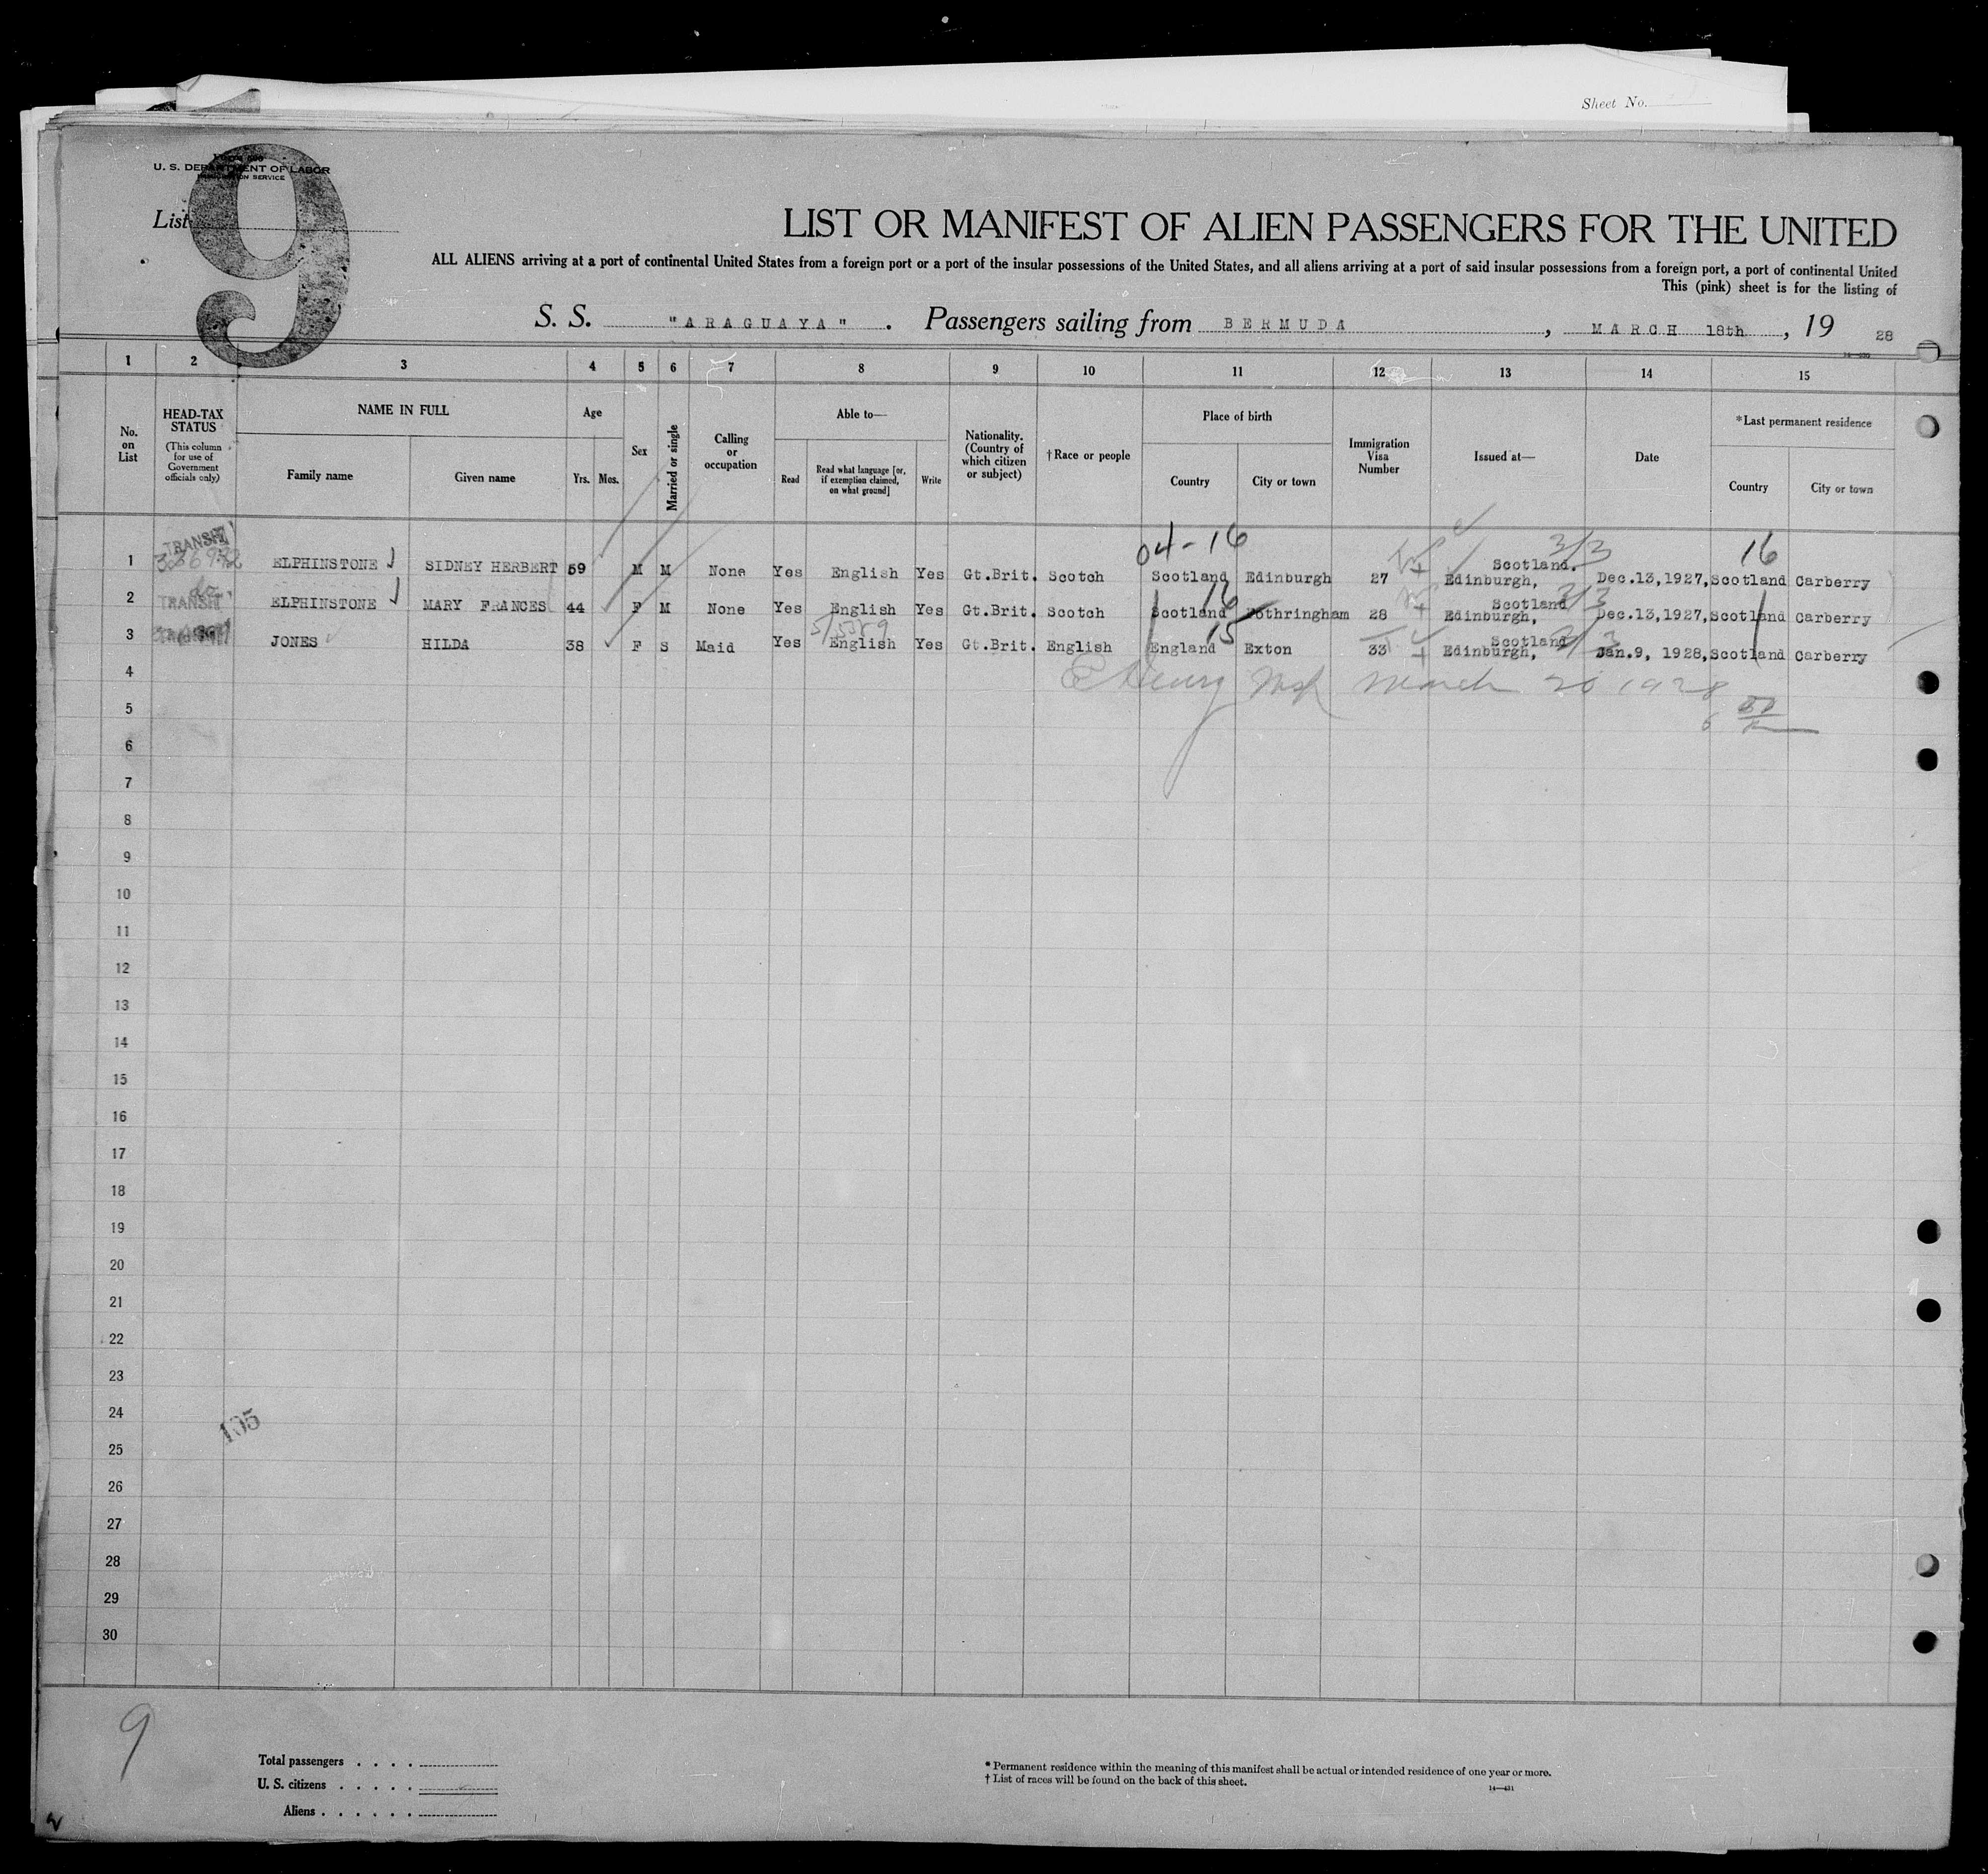 Sheet No.
U. S. DEPARTMENT OF LABOR
IMMIGRATION SERVICE
List 9
LIST OR MANIFEST OF ALIEN PASSENGERS FOR THE UNITED
ALL ALIENS arriving at a port of continental United States from a foreign port or a port of the insular possessions of the United States, and all aliens arriving at a port of said insular possessions from a foreign port, a port of continental United
This (pink) sheet is for the listing of
S. S. "ARAGUAYA". Passengers sailing from BERMUDA, MARCH 18th, 19 28
1 2 3 4 5 6 7 8 9 10 11 12 13 14 15
No. on List
HEAD-TAX STATUS (This column for use of Government officials only)
NAME IN FULL
Family name
Given name
Age
Yrs. Mos.
Sex
Married or single
Calling or occupation
Able to—
Read
Read what language [or, if exemption claimed, on what ground]
Write
Nationality. (Country of which citizen or subject)
†Race or people
Place of birth
Country
City or town
Immigration Visa Number
Issued at—
Date
*Last permanent residence
Country
City or town
04-16 3/3 16
TRANSIT
1 ELPHINSTONE SIDNEY HERBERT 59 M M None Yes English Yes Gt.Brit. Scotch Scotland Edinburgh 27 Edinburgh, Scotland. Dec.13,1927, Scotland Carberry
16 3/3
TRANSIT
2 ELPHINSTONE MARY FRANCES 44 F M None Yes English Yes Gt.Brit. Scotch Scotland Fothringham 28 Edinburgh, Scotland Dec.13,1927, Scotland Carberry
15
3 JONES HILDA 38 F S Maid Yes English Yes Gt.Brit. English England Exton 33 Edinburgh, Scotland Jan.9, 1928, Scotland Carberry
4 March 20 1928
5
6
7
8
9
10
11
12
13
14
15
16
17
18
19
20
21
22
23
24
105
25
26
27
28
29
30
9
Total passengers . . . .
U. S. citizens . . . . .
Aliens . . . . . .
* Permanent residence within the meaning of this manifest shall be actual or intended residence of one year or more.
† List of races will be found on the back of this sheet.
14—431
2